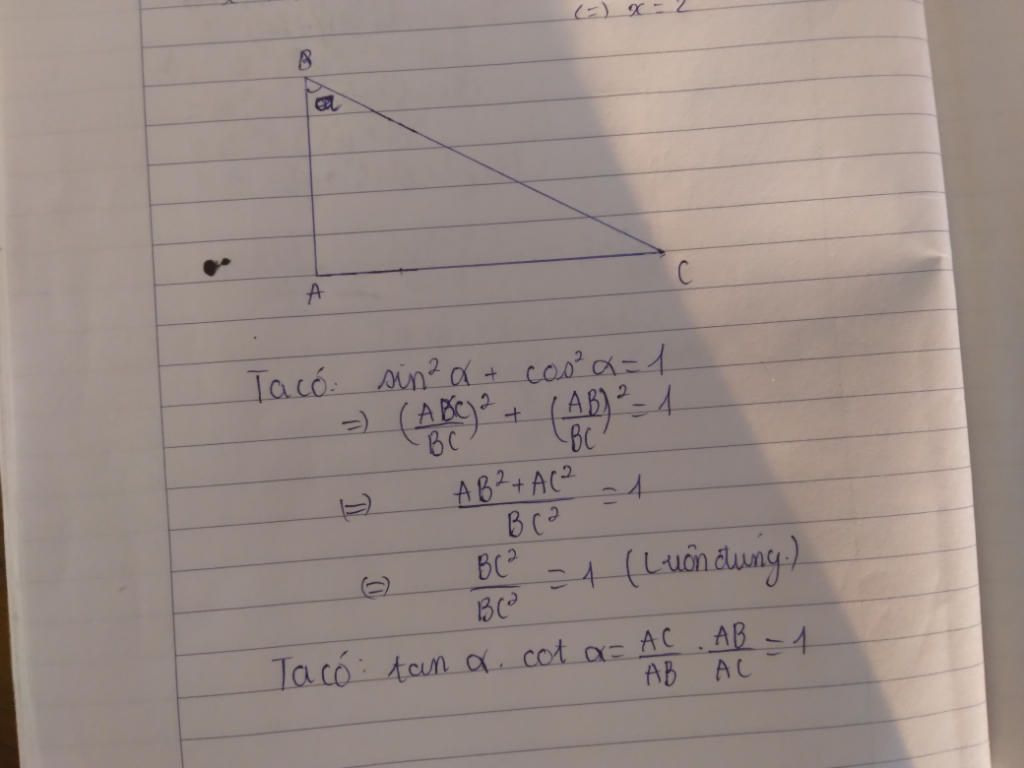 (=) x = 2
B
α
A
C
Ta có: sin² α + cos² α = 1
=) (ABC/BC)² + (AB/BC)² = 1
(=) AB² + AC²/BC² = 1
(=) BC²/BC² = 1 (Luôn đúng.)
Ta có: tan α. cot α = AC/AB . AB/AC = 1